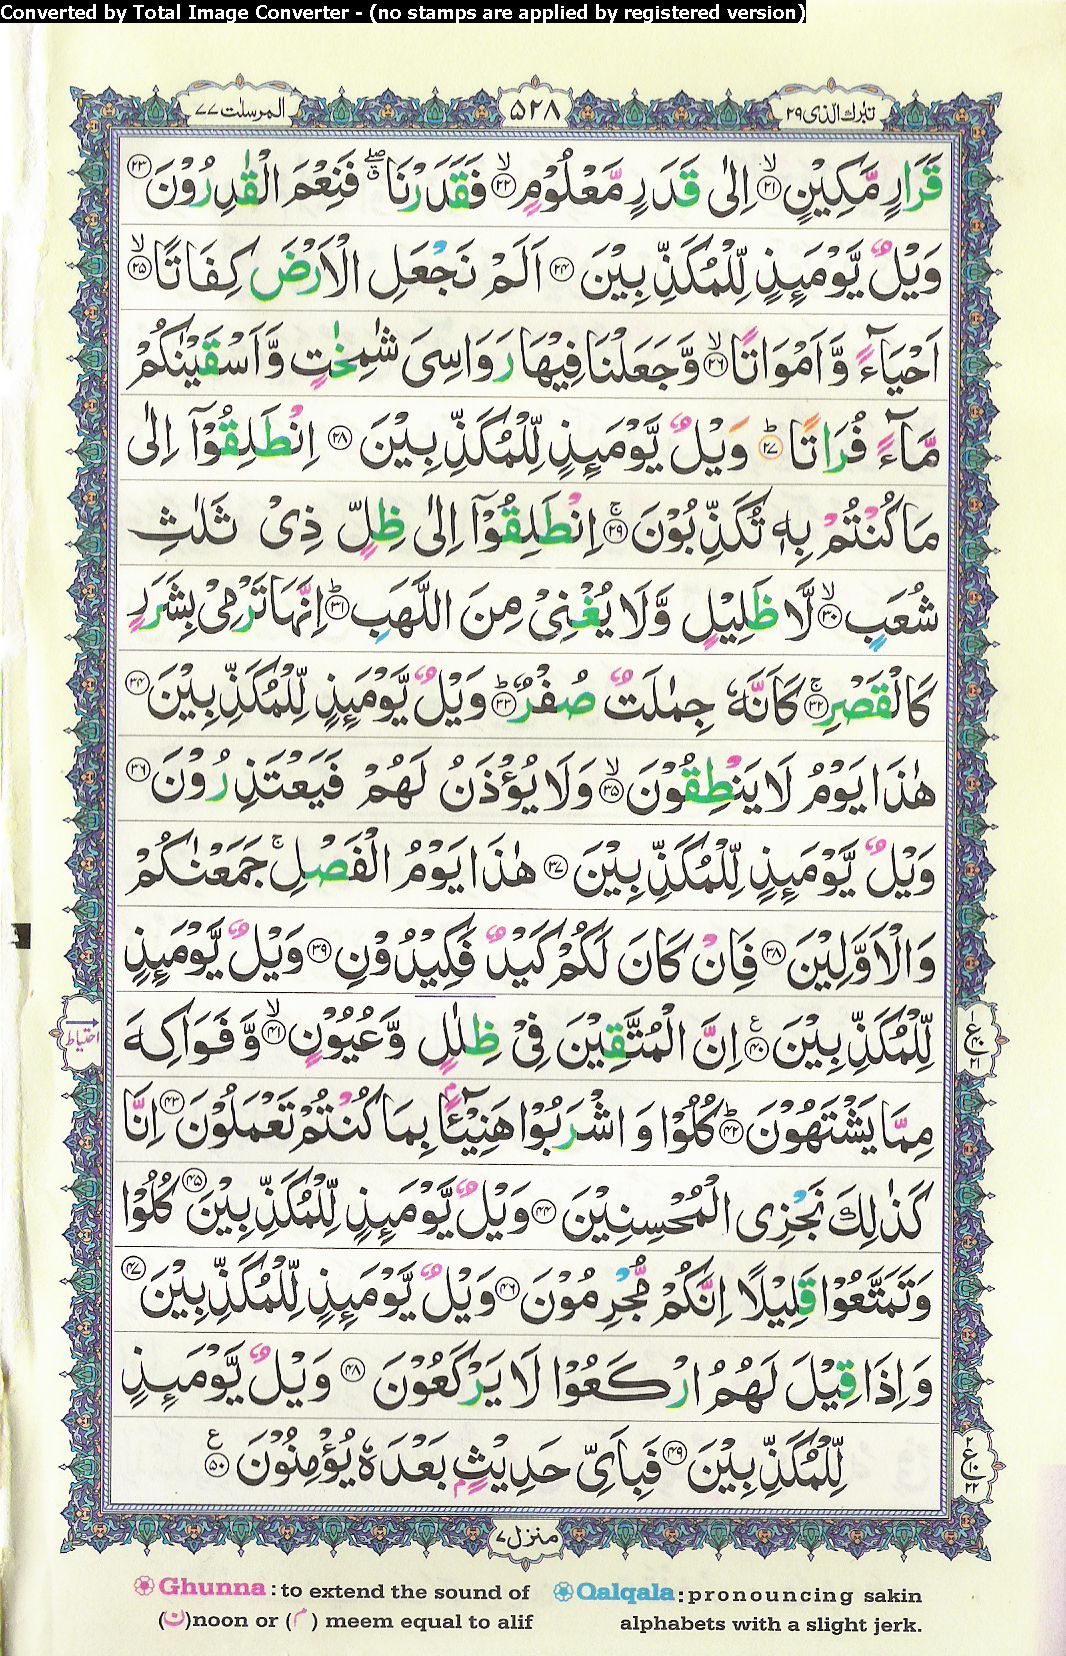 Converted by Total Image Converter - (no stamps are applied by registered version)
تبٰرك الذی ۲۹ ۵۲۸ المرسلٰت ۷۷
قَرَارٍ مَّكِيْنٍ ﴿۲۱﴾ۙ اِلٰى قَدَرٍ مَّعْلُوْمٍ ﴿۲۲﴾ۙ فَقَدَرْنَا ۖۗ فَنِعْمَ الْقٰدِرُوْنَ ﴿۲۳﴾
وَيْلٌ يَّوْمَىِٕذٍ لِّلْمُكَذِّبِيْنَ ﴿۲۴﴾ اَلَمْ نَجْعَلِ الْاَرْضَ كِفَاتًا ﴿۲۵﴾ۙ
اَحْيَآءً وَّاَمْوَاتًا ﴿۲۶﴾ۙ وَّجَعَلْنَا فِيْهَا رَوَاسِىَ شٰمِخٰتٍ وَّاَسْقَيْنٰكُمْ
مَّآءً فُرَاتًا ﴿۲۷﴾ؕ وَيْلٌ يَّوْمَىِٕذٍ لِّلْمُكَذِّبِيْنَ ﴿۲۸﴾ اِنْطَلِقُوْۤا اِلٰى
مَا كُنْتُمْ بِهٖ تُكَذِّبُوْنَ ﴿۲۹﴾ۚ اِنْطَلِقُوْۤا اِلٰى ظِلٍّ ذِىْ ثَلٰثِ
شُعَبٍ ﴿۳۰﴾ۙ لَّا ظَلِيْلٍ وَّلَا يُغْنِىْ مِنَ اللَّهَبِ ﴿۳۱﴾ؕ اِنَّهَا تَرْمِىْ بِشَرَرٍ
كَالْقَصْرِ ﴿۳۲﴾ۚ كَاَنَّهٗ جِمٰلَتٌ صُفْرٌ ﴿۳۳﴾ؕ وَيْلٌ يَّوْمَىِٕذٍ لِّلْمُكَذِّبِيْنَ ﴿۳۴﴾
هٰذَا يَوْمُ لَا يَنْطِقُوْنَ ﴿۳۵﴾ۙ وَلَا يُؤْذَنُ لَهُمْ فَيَعْتَذِرُوْنَ ﴿۳۶﴾
وَيْلٌ يَّوْمَىِٕذٍ لِّلْمُكَذِّبِيْنَ ﴿۳۷﴾ هٰذَا يَوْمُ الْفَصْلِ ۚ جَمَعْنٰكُمْ
وَالْاَوَّلِيْنَ ﴿۳۸﴾ فَاِنْ كَانَ لَكُمْ كَيْدٌ فَكِيْدُوْنِ ﴿۳۹﴾ وَيْلٌ يَّوْمَىِٕذٍ
لِّلْمُكَذِّبِيْنَ ﴿۴۰﴾ع اِنَّ الْمُتَّقِيْنَ فِىْ ظِلٰلٍ وَّعُيُوْنٍ ﴿۴۱﴾ۙ وَّفَوَاكِهَ
احتیاط
ع ۱ ۴۰ ۲۱
مِمَّا يَشْتَهُوْنَ ﴿۴۲﴾ؕ كُلُوْا وَاشْرَبُوْا هَنِيْۤـًٔۢا بِمَا كُنْتُمْ تَعْمَلُوْنَ ﴿۴۳﴾ اِنَّا
كَذٰلِكَ نَجْزِى الْمُحْسِنِيْنَ ﴿۴۴﴾ وَيْلٌ يَّوْمَىِٕذٍ لِّلْمُكَذِّبِيْنَ ﴿۴۵﴾ كُلُوْا
وَتَمَتَّعُوْا قَلِيْلًا اِنَّكُمْ مُّجْرِمُوْنَ ﴿۴۶﴾ وَيْلٌ يَّوْمَىِٕذٍ لِّلْمُكَذِّبِيْنَ ﴿۴۷﴾
وَاِذَا قِيْلَ لَهُمُ ارْكَعُوْا لَا يَرْكَعُوْنَ ﴿۴۸﴾ وَيْلٌ يَّوْمَىِٕذٍ
لِّلْمُكَذِّبِيْنَ ﴿۴۹﴾ فَبِاَىِّ حَدِيْثٍۢ بَعْدَهٗ يُؤْمِنُوْنَ ﴿۵۰﴾ع
ع ۲ ۱۰ ۲۲
منزل ۷
Ghunna : to extend the sound of (ن)noon or (م) meem equal to alif
Qalqala : pronouncing sakin alphabets with a slight jerk.